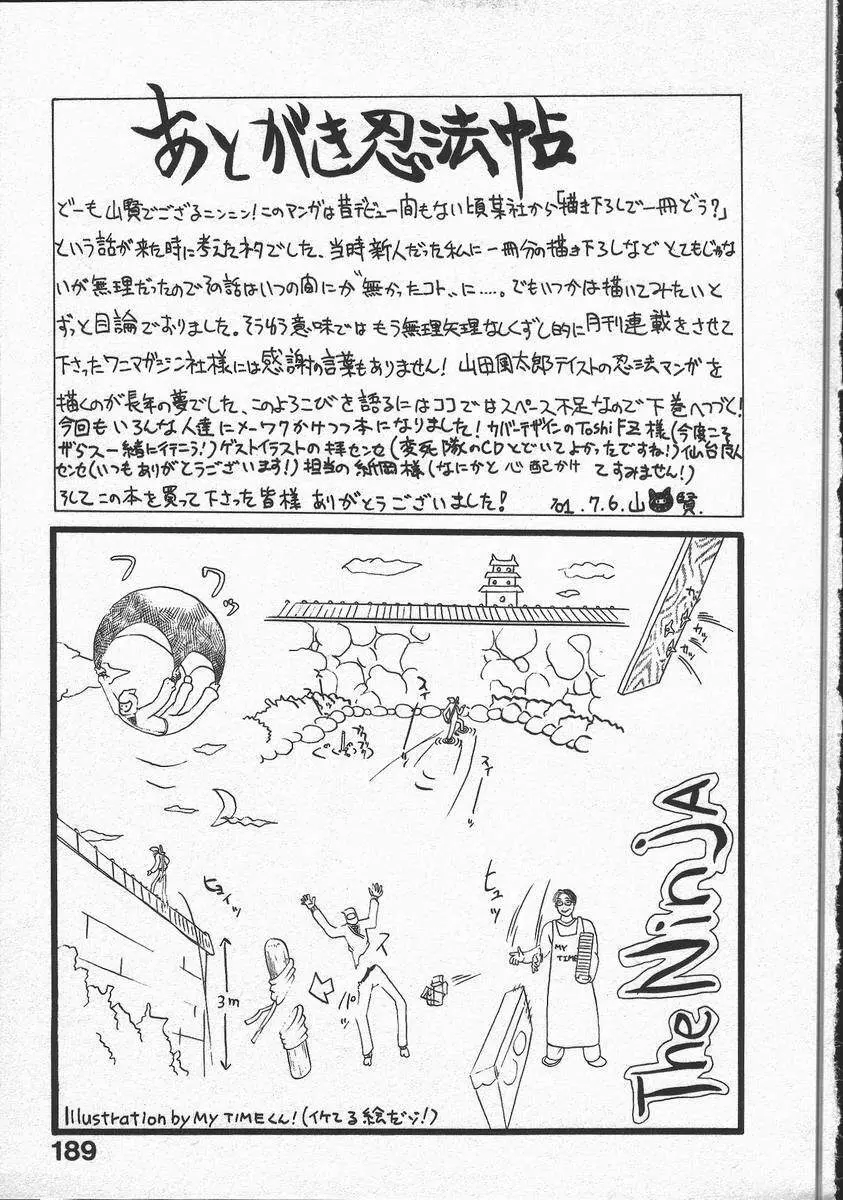 あとがき忍法帖
どーも山賢でござるニンニン!このマンガは昔デビュー間もない頃某社から「描き下ろしで一冊どう?」
という話が来た時に考えたネタでした、当時新人だった私に一冊分の描き下ろしなどとてもじゃな
いが無理だったのでその話はいつの間にか〝無かったコト〟に……。でもいつかは描いてみたいと
ずっと目論でおりました。そうゆう意味ではもう無理矢理なしくずし的に月刊連載をさせて
下さったワニマガジン社様には感謝の言葉もありません!山田風太郎テイストの忍法マンガを
描くのが長年の夢でした、このよろこびを語るにはココではスペース不足なので下巻へつづく!
今回もいろんな人達にメーワクかけつつ本になりました!カバーデザインのToshi F.Z様(今度こそ
ザらス一緒に行こう!)ゲストイラストの拝センセ(変死隊のCDとどいてよかったですね!)仙台
センセ(いつもありがとうございます!)担当の紙岡様(なにかと心配かけてすみません!)
そしてこの本を買って下さった皆様ありがとうございました!
'01.7.6.山賢.
フワッ
カッ
カッ
スイ
スイ
ヒョイッ
3m
ス
パ°
ヒュッ
MY
TIME
The Ninja
Illustration by MY TIMEくん!(イケてる絵だゾ!)
189